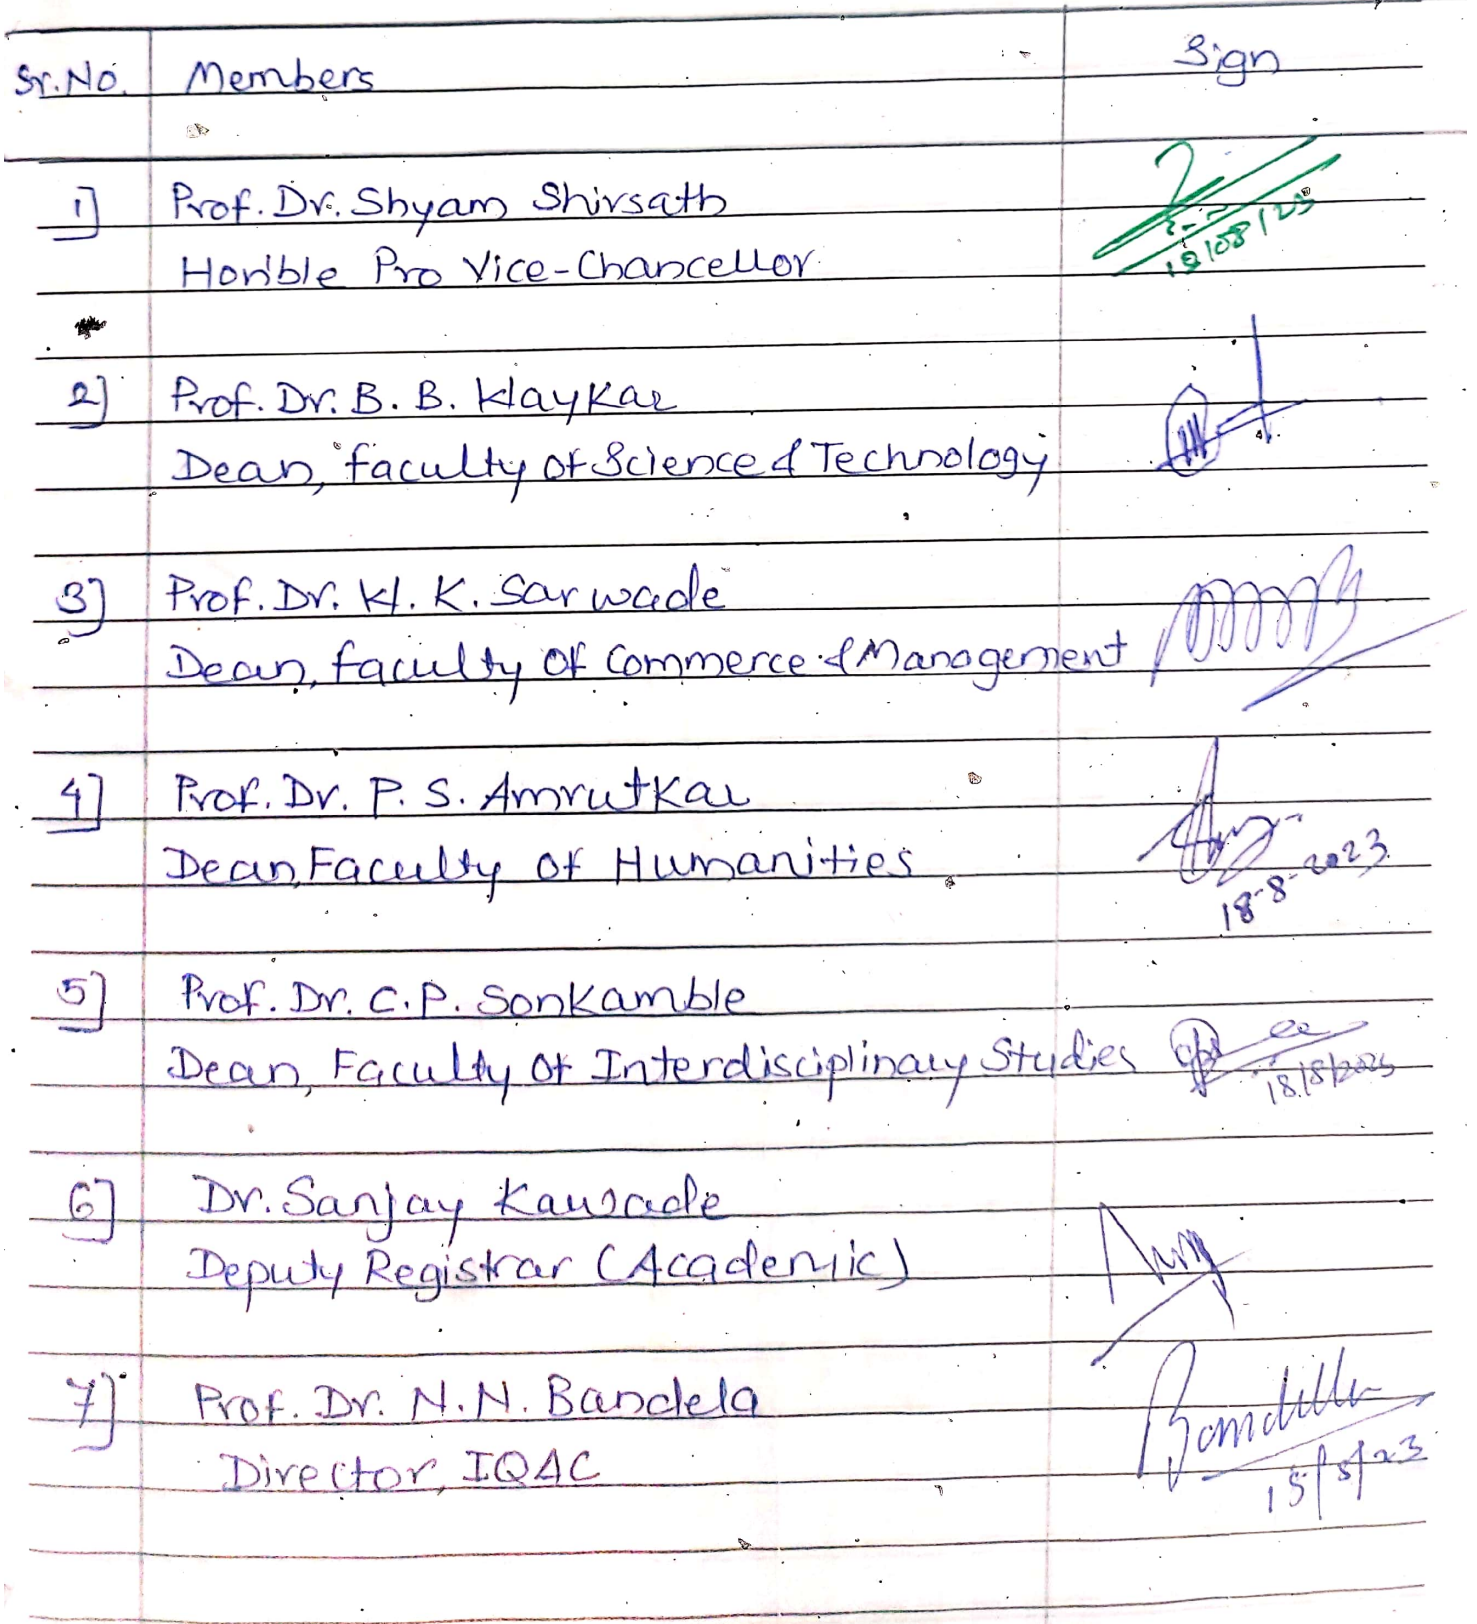 Sr.No. Members Sign
1] Prof. Dr. Shyam Shirsath
Hon'ble Pro Vice-Chancellor
18/08/23
2] Prof. Dr. B. B. Waykar
Dean, faculty of Science & Technology
3] Prof. Dr. W. K. Sarwade
Dean, faculty of Commerce & Management
4] Prof. Dr. P. S. Amrutkar
Dean, Faculty of Humanities
18-8-2023
5] Prof. Dr. C. P. Sonkamble
Dean, Faculty of Interdisciplinary Studies
18/8/2023
6] Dr. Sanjay Kawade
Deputy Registrar (Academic)
7] Prof. Dr. N. N. Bandela
Director, IQAC